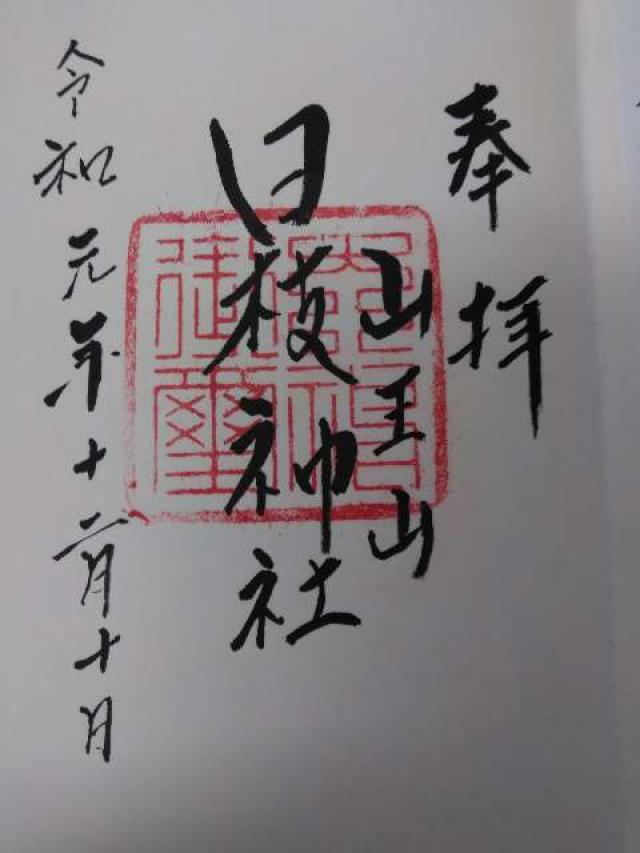 奉拝
山王山
日枝神社
令和元年十二月十日